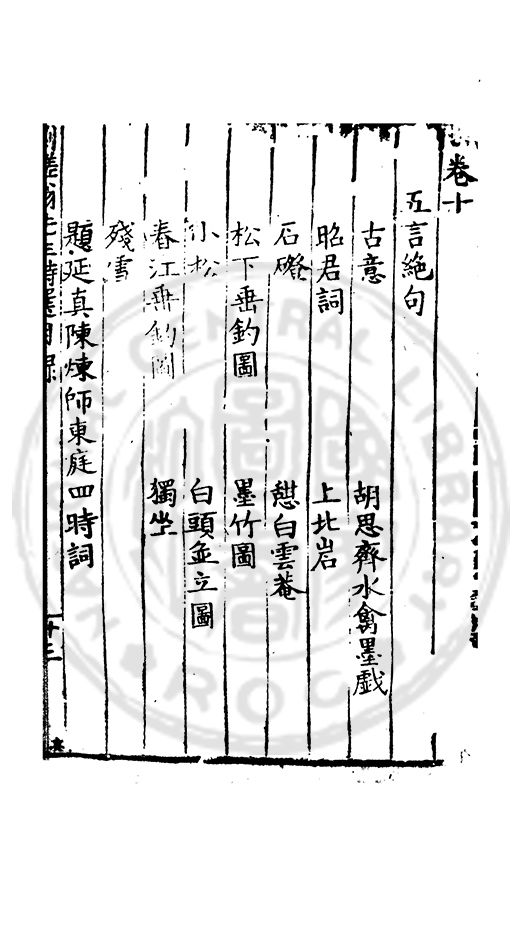 卷十
五言絕句
古意 胡思齊水禽墨戱
昭君詞 上北岩
石磴 憇白雲菴
松下垂釣圖 墨竹圖
小松 白頭並立圖
春江垂釣圖 獨坐
殘雪
題延真陳煉師東庭四時詞
CENTRAL LIBRARY
R.O.C